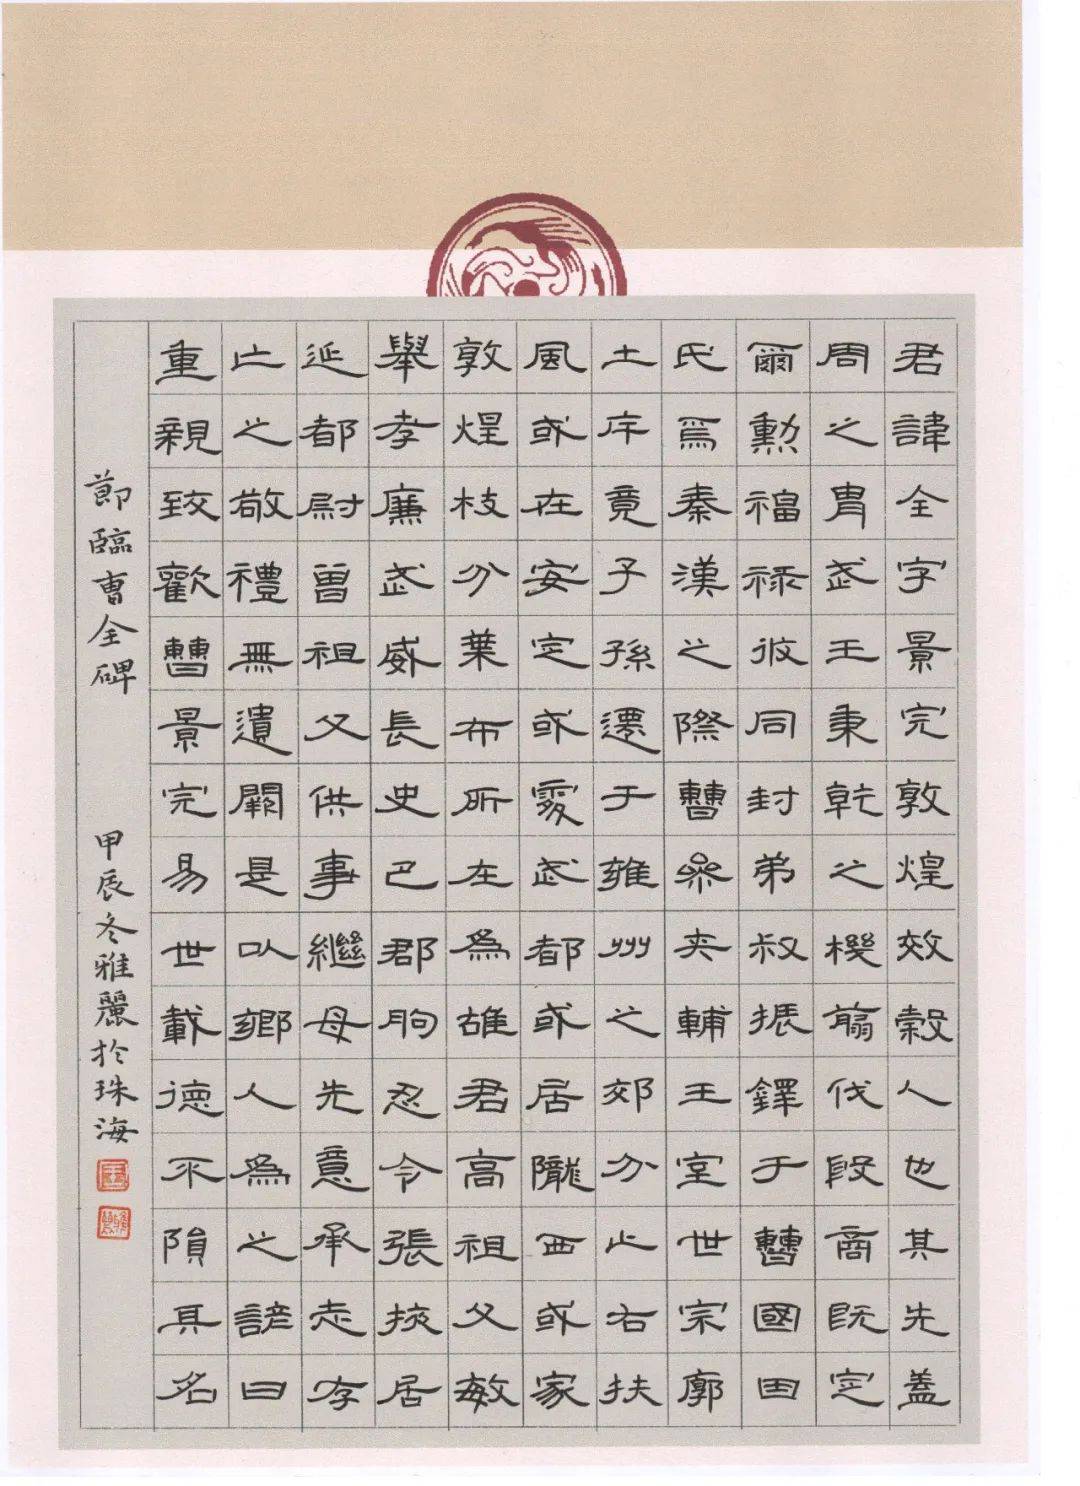 君諱全字景完敦煌效穀人也其先蓋
周之胄武王秉乾之機翦伐殷商既定
爾勲福祿攸同封弟叔振鐸于曹國因
氏焉秦漢之際曹參夾輔王室世宗廓
土斥竟子孫遷于雍州之郊分止右扶
風或在安定或處武都或居隴西或家
敦煌枝分葉布所在為雄君高祖父敏
舉孝廉武威長史巴郡朐忍令張掖居
延都尉曾祖父供事繼母先意承志存
亡之敬禮無遺闕是以鄉人為之諺曰
重親致歡曹景完易世載德不隕其名
節臨曹全碑 甲辰冬雅麗於珠海